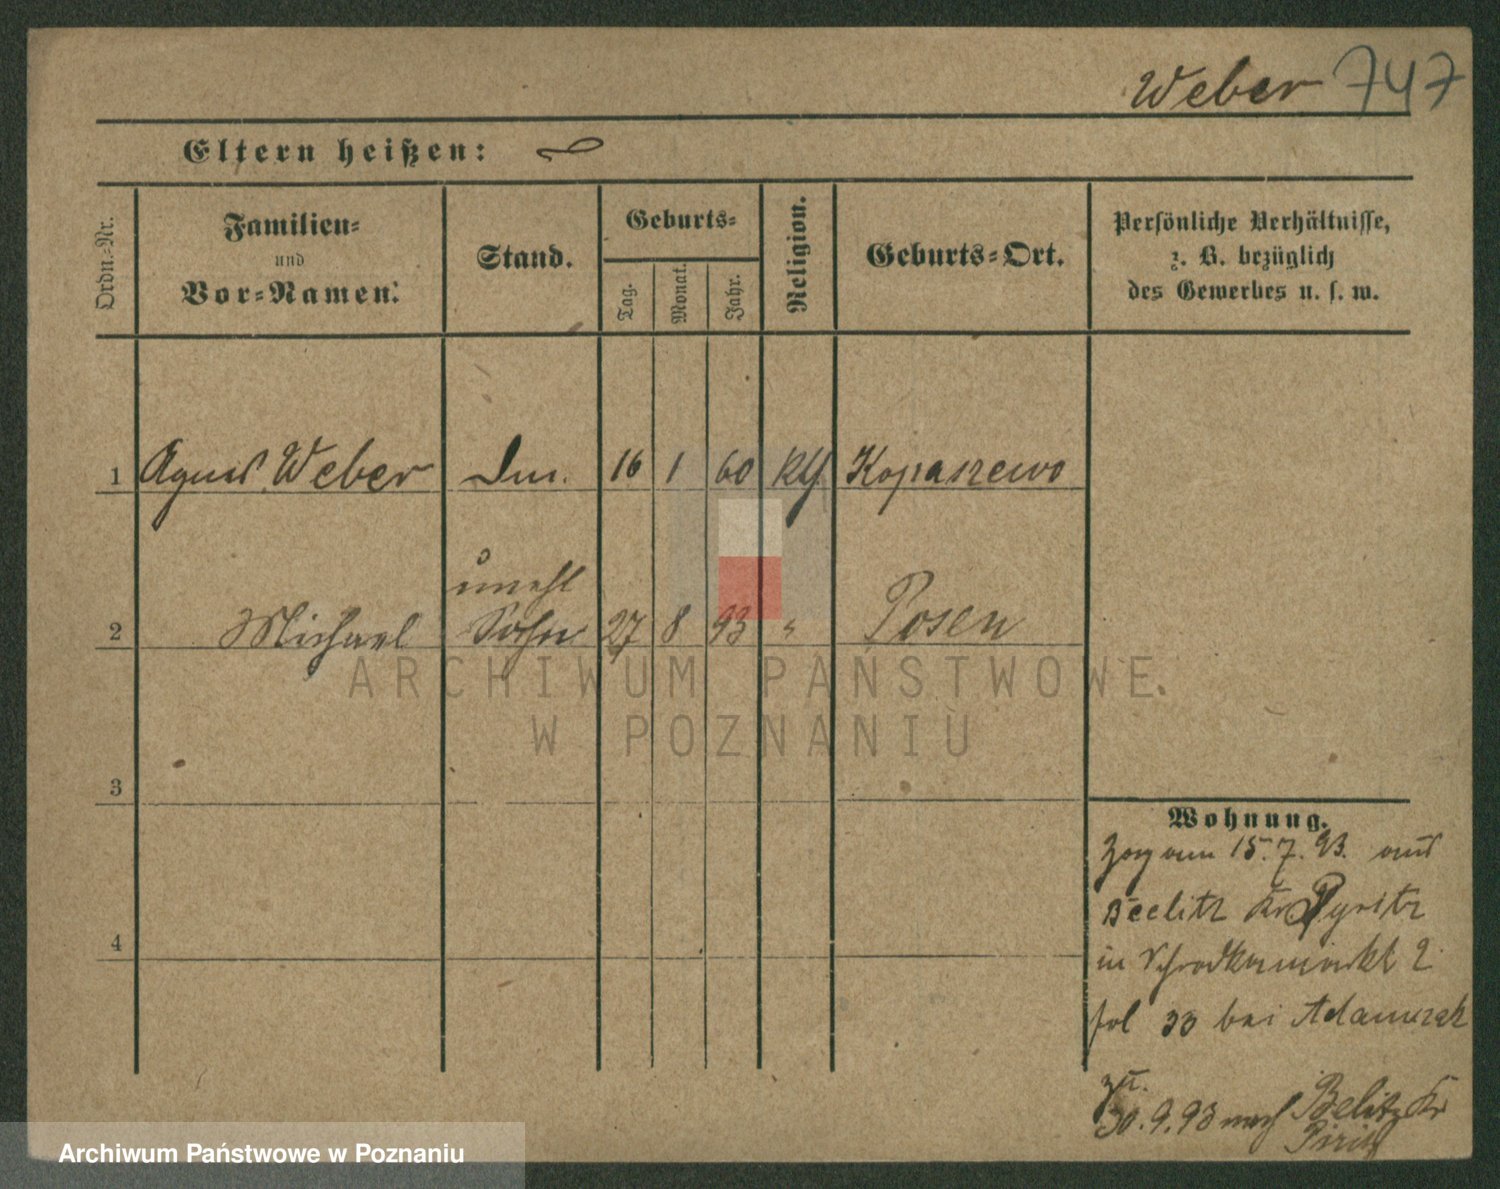 Weber 747
Eltern heißen:
Ordn.-Nr.
Familien-
und
Vor-Namen.
Stand.
Geburts-
Tag.
Monat.
Jahr.
Religion.
Geburts-Ort.
Persönliche Verhältnisse,
z. B. bezüglich
des Gewerbes u. s. w.
1 Agnes Weber 16 1 60 Kopaszewo
unehl
2 Michael Sohn 27 8 93 " Posen
ARCHIWUM PAŃSTWOWE
W POZNANIU
3
Wohnung.
Zog am 15.7.93. aus
Beelitz Kr Pyritz
4
in Schrodkamarkt 2
fol 33 bei Adamczak
zu.
30.9.93 nach Belitz Kr
Archiwum Państwowe w Poznaniu